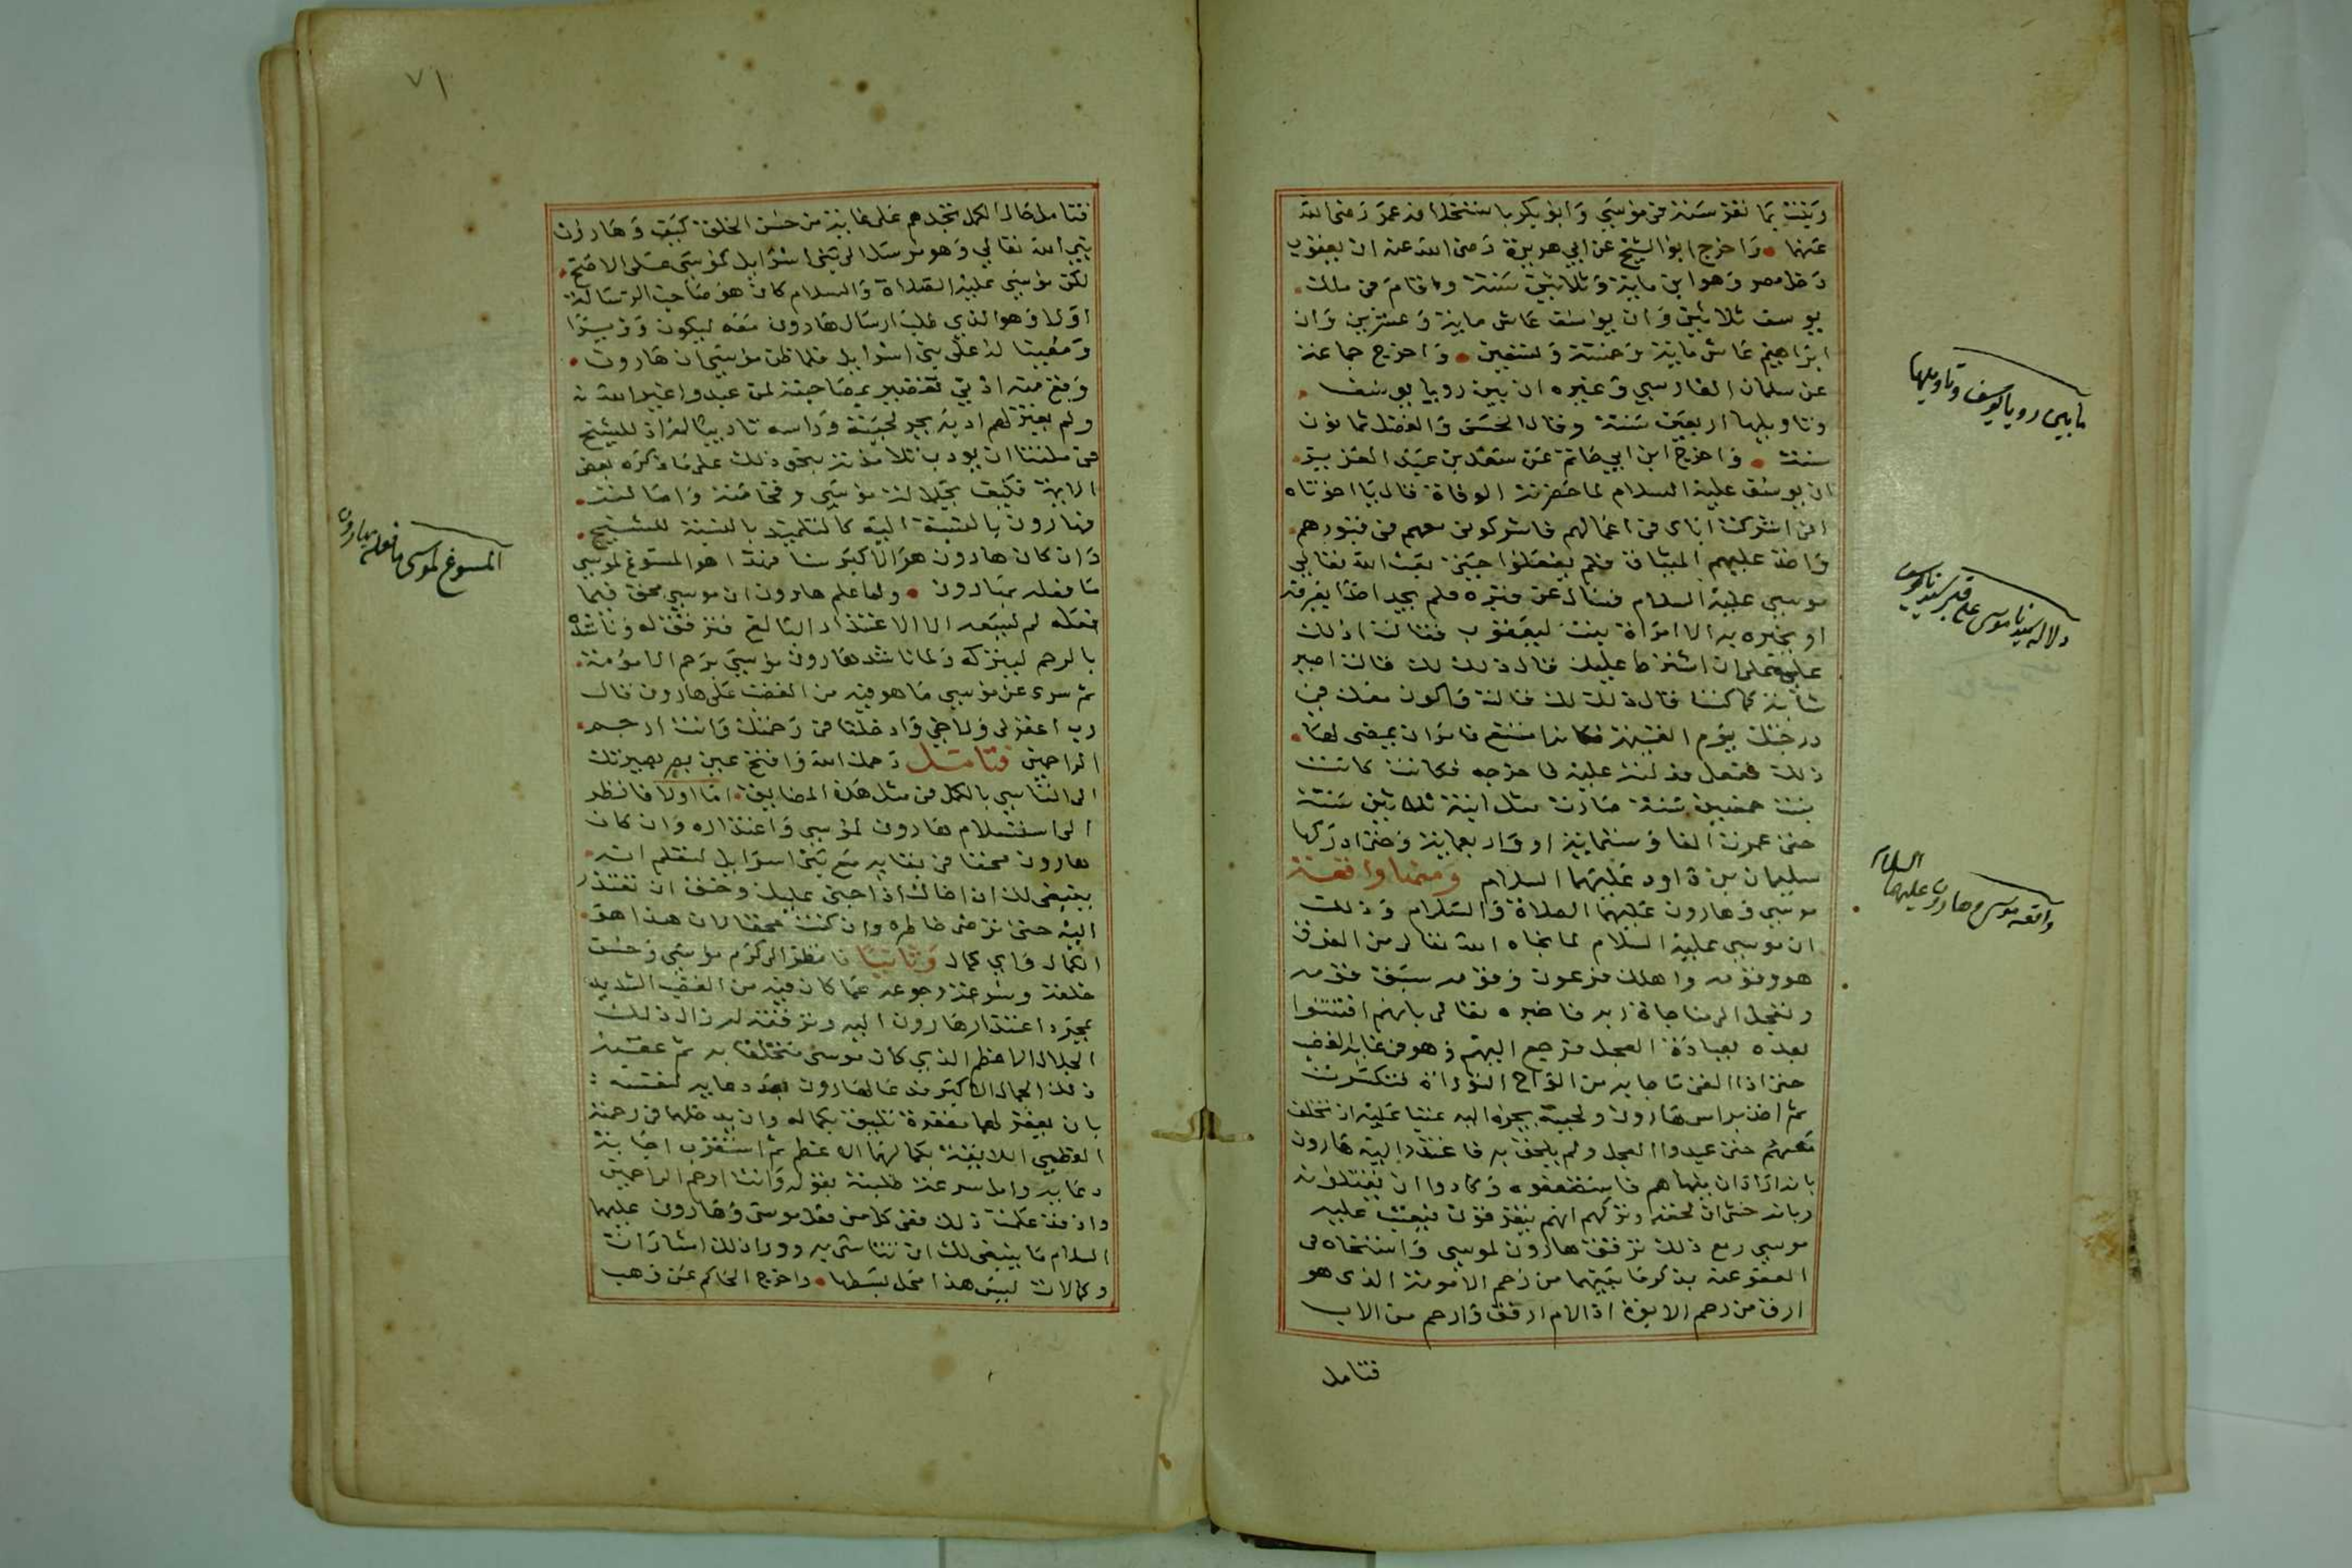 عنهما • واخرج ابو الشيخ عن ابي هريرة رضي الله عنه ان يعقوب
دخل مصر وهو ابن ماية وثلاثين سنة واقام في ملك
يوسف ثلاثين وان يوسف عاش ماية وعشرين وان
ابراهيم عاش ماية وخمسة وتسعين • واخرج جماعة
عن سلمان الفارسي وغيره ان بين رويا يوسف
وتاويلها اربعين سنة وقال الحسن والفضل ثمانون
سنة • واخرج ابن ابي حاتم عن سعد بن عبد العزيز
ان يوسف عليه السلام لما حضرته الوفاة قال يا اخوتاه
اني اشركت اباي في اعمالهم فاشركوني معهم في قبورهم
واخذ عليهم الميثاق فلم يفعلوا حتى بعث الله تعالى
موسى عليه السلام فسال عن قبره فلم يجد احدا يعرفه
او يخبره به الا امراة بنت ليعقوب فقالت ادلك
عليه على ان اشترط عليك قال ذلك لك قالت اصير
شابة كما كنت قال ذلك لك قالت واكون معك في
درجتك يوم القيمة فكانه امتنع فامر ان يمضي لها
ذلك ففعل فدلته عليه فاخرجه فكانت كانت
بنت خمسين سنة صارت مثل ابنة ثلاثين سنة
حتى عمرت الفا وستماية او واربعماية وحتى ادركها
سليمان بن داود عليهما السلام ومنها واقعة
موسى وهارون عليهما الصلاة والسلام وذلك
ان موسى عليه السلام لما نجاه الله تعالى من الغرق
هو وقومه واهلك فرعون وقومه سبق قومه
وتعجل الى مناجاة ربه فاخبره تعالى بانهم افتتنوا
بعده بعبادة العجل فرجع اليهم وهو في غاية الغضب
حتى اذا القى ما جا به من الواح التوراة فتكسرت
ثم اخذ براس هارون ولحيته يجره اليه عتبا عليه ان تخلف
معهم حتى عبدوا العجل ولم يلحق به فاعتذر اليه هارون
بانه اراد ان ينهاهم فاستضعفوه وكادوا ان يقتلونه
وبانه خشى ان لحقه وتركهم انهم
موسى ومع ذلك ترفق هارون لموسى
العفو عنه بذكر ما بينهما من رحم الامومة الذي هو
ارق من رحم الابوة اذ الام ارقق وارحم من الاب
فتامل
ما بين رويا يوسف وتاويلها
دلالة سيدنا موسى على قبر سيدنا يوسف
واقعة موسى وهارون عليهما السلام
٧١
فتامل حال الكمل تجدهم على غاية من حسن الخلق كيف وهارون
نبي الله تعالى وهو مرسل الى بني اسرايل كموسى على الاصح
لكن موسى عليه الصلاة والسلام كان هو صاحب الرسالة
اولا وهو الذي طلب ارسال هارون معه ليكون وزيرا
ومعينا له على بني اسرايل فلما ظن موسى ان هارون
وقع منه ادنى تقصير بمصاحبته لمن عبدوا غير الله
ولم يعتزلهم ادبه بجر لحيته وراسه تاديبا له اذ للشيخ
في ملتنا ان يودب تلامذته بنحو ذلك على ما ذكره بعض
الايمة فكيف بجلالة موسى وفخامته واصالته
فهارون بالنسبة اليه كالتلميذ بالنسبة للشيخ
وان كان هارون هو الاكبر سنا فهذا هو المسوغ لموسى
ما فعله بهارون • ولما علم هارون ان موسى محق فيما
فعله لم يسعه الا الاعتذار البالغ فترفق له وناشده
بالرحم ليتركه ولما ناشد هارون موسى برحم الامومة
ثم سري عن موسى ما هو فيه من الغضب على هارون قال
رب اغفر لي ولاخي وادخلنا في رحمتك وانت ارحم
الراحمين فتامل رحمك الله وافتح عين بصيرتك
الى التاسي بالكمل في مثل هذه المضايق • اما اولا فانظر
الى استسلام هارون لموسى واعتذاره وان كان
هارون محقا في بقايه مع بني اسرايل لتعلم انه
ينبغي لك ان اخاك اذا جنى عليك وحقق ان تعتذر
اليه حتى ترضي خاطره وان كنت محقا لان هذا هو
الكمال واي كمال وثانيا فانظر الى كرم موسى وحسن
خلقه وسرعة رجوعه عما كان فيه من الغضب الشديد
بمجرد اعتذار هارون اليه وترفقه له زال ذلك
الجلال الاعظم الذي كان موسى متخلقا به ثم عقبه
ذلك الجمال الاكبر فدعا لهارون بعد دعايه لنفسه
بان يغفر لهما مغفرة تليق بكماله وان يدخلهما في رحمته
العظمى اللايقة بكمالهما الاعظم ثم استقرب اجابة
دعايه وامل سرعة طلبته بقوله وانت ارحم الراحمين
واذ قد علمت ذلك ففي كل من فعل موسى وهارون عليهما
السلام ما ينبغي لك ان تتاسى به وورا ذلك اشارات
وكمالات ليس هذا محل بسطها • واخرج الحاكم عن وهب
المسوغ لموسى ما فعله بهارون